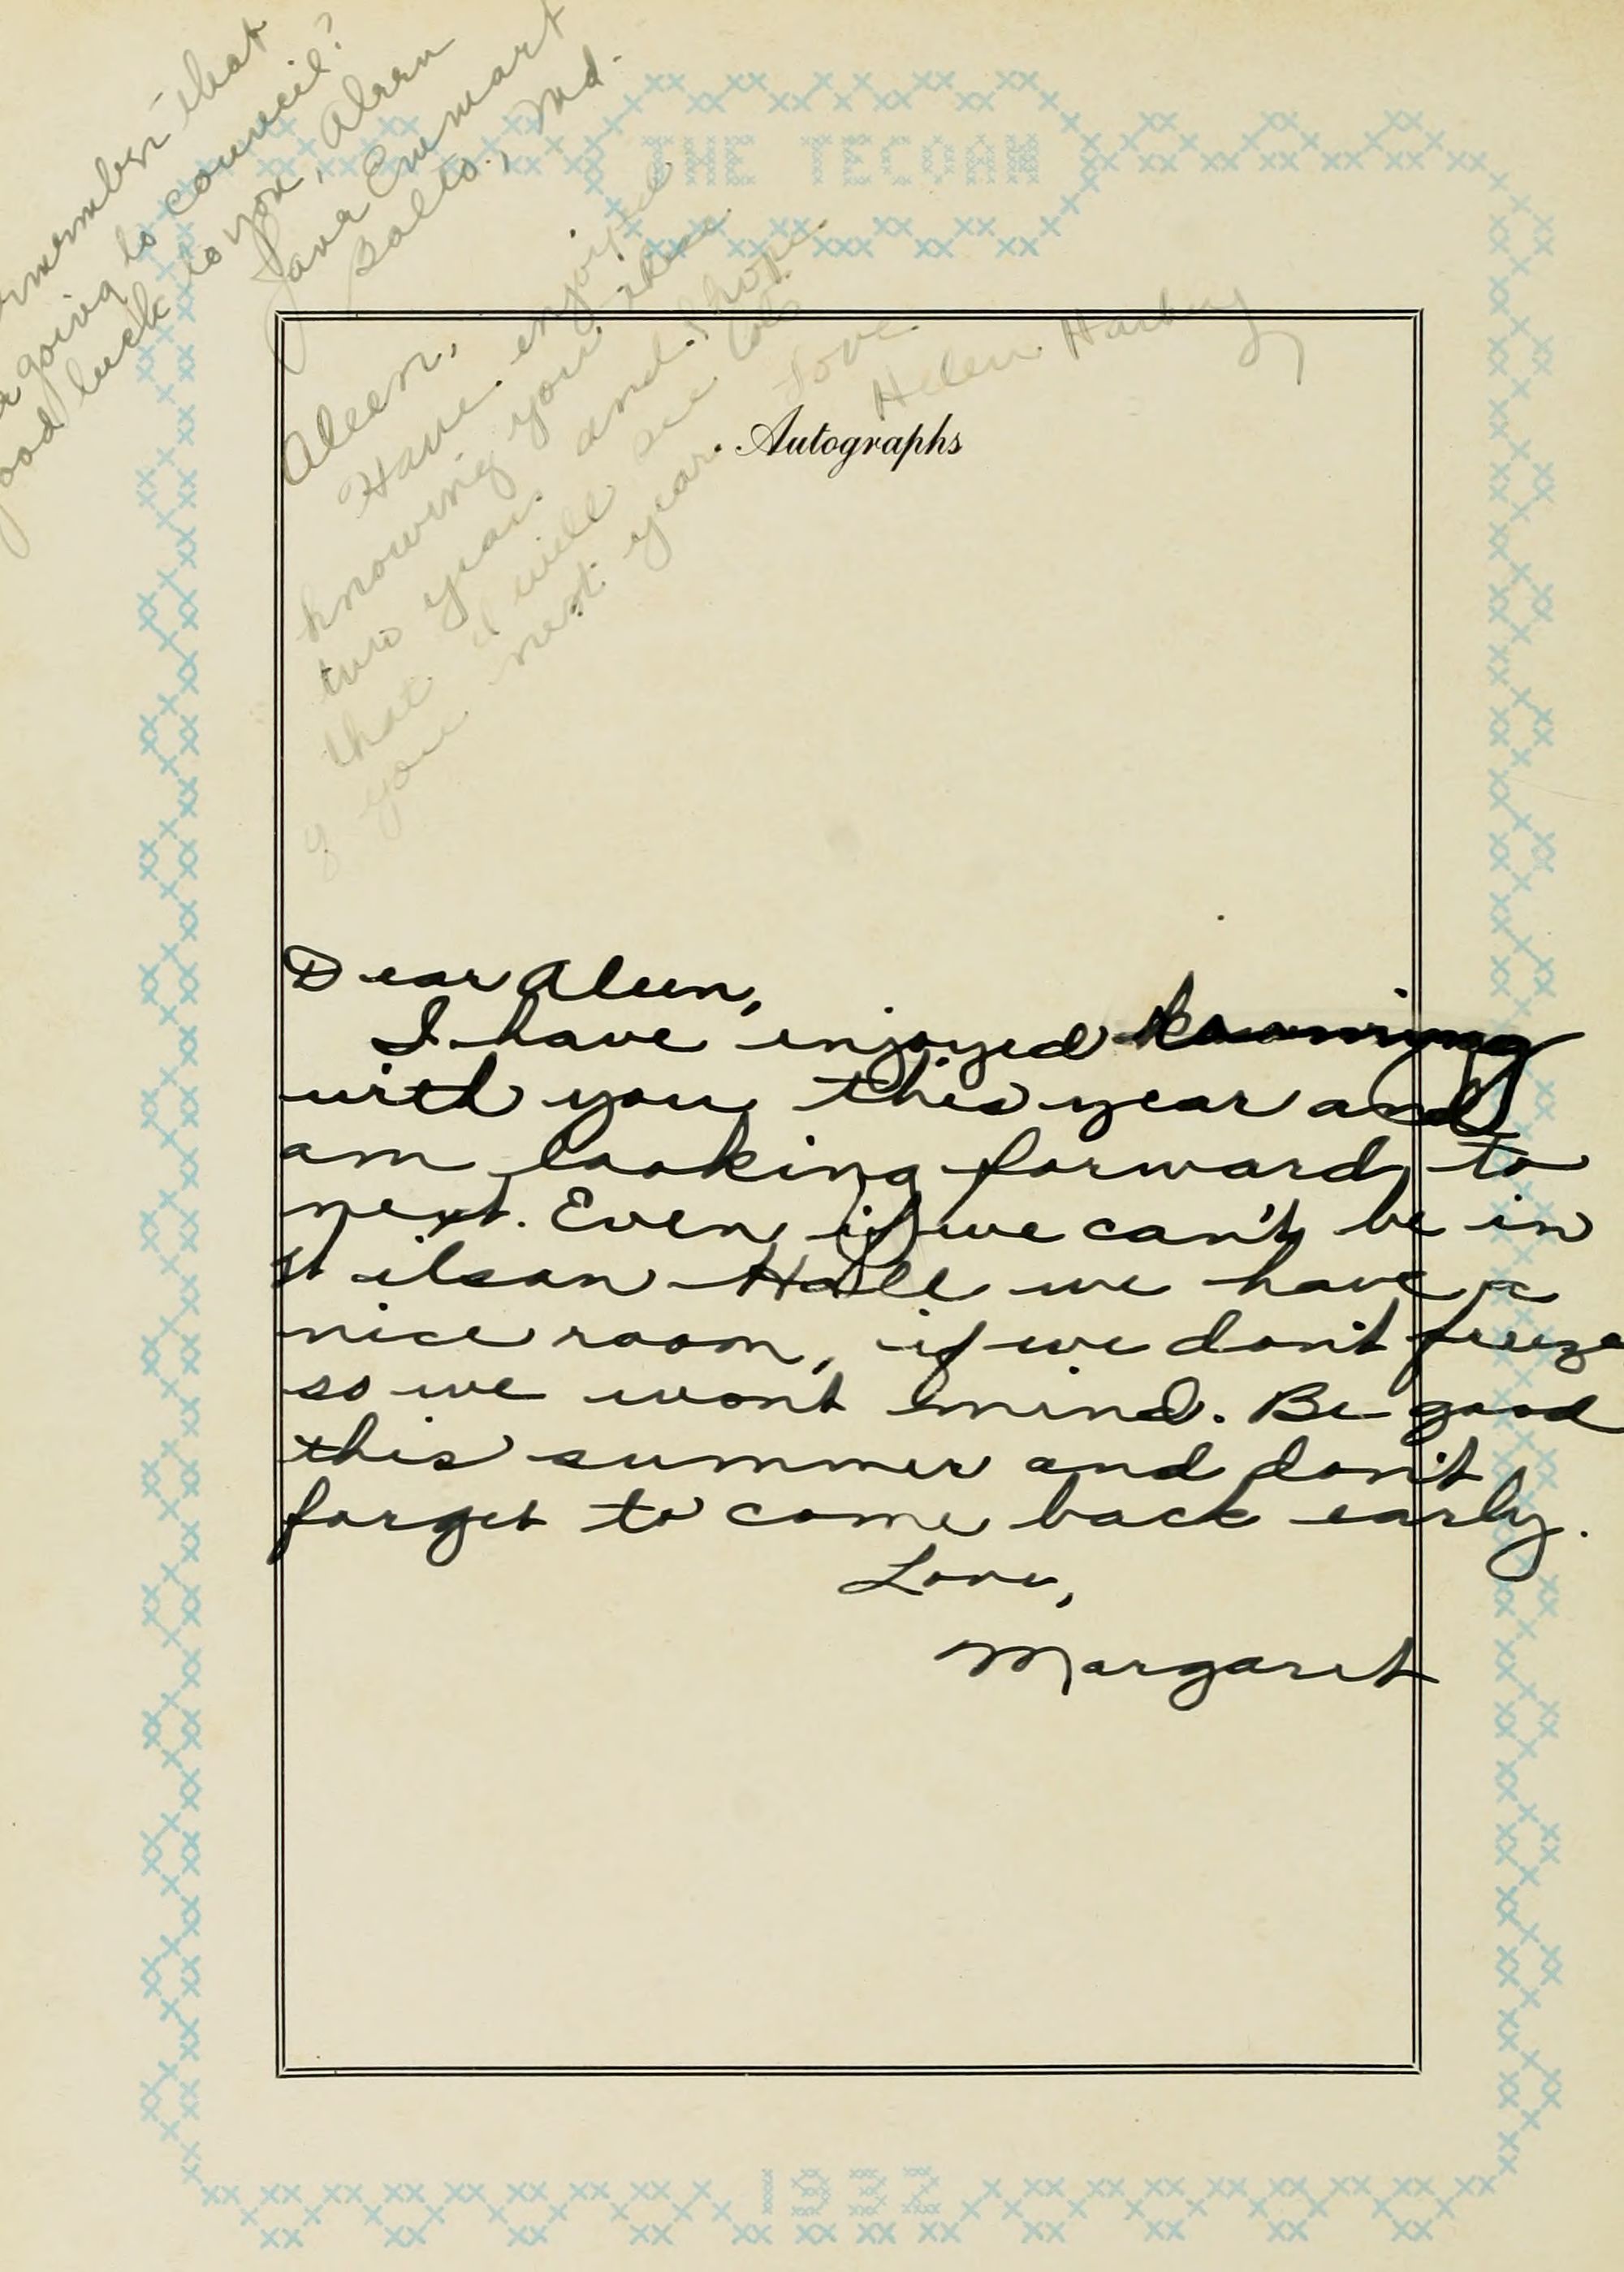 remember that
going to council?
good luck to you, Aleen
Jane
Balto., Md.
THE TECOAN
Aleen,
Have enjoyed
knowing you these
two years and I hope
that I will see lots
of you next year.
Love
Helen
Autographs
Dear Aleen,
I have enjoyed rooming
with you this year and
am looking forward to
next. Even if we can't be in
Wilson Hall we have a
nice room, if we don't freeze
so we wont mind. Be good
this summer and don't
forget to come back early.
Love,
Margaret
1932